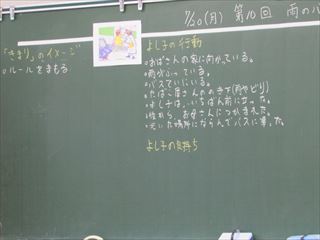 7/20(月) 第10回 雨のバ
「きまり」のイメージ
・ルールをまもる
よし子の行動
・おばさんの家に向かっている。
・雨がふっている。
・バスでいこうとしている。
・たばこ屋さんののき下(雨やどり)
・よし子は、いちばん前に立った。
・後から、お母さんにつかまれた。
・元いた場所にならんでバスに乗った。
よし子の気持ち